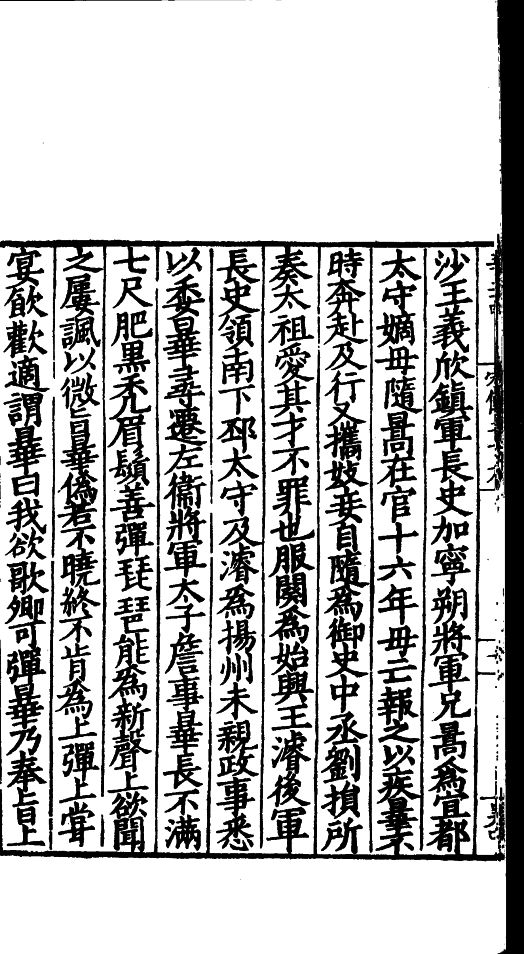 沙王義欣鎮軍長史加寧朔將軍兄暠爲宜都
太守嫡母隨暠在官十六年母亡報之以疾曅不
時奔赴及行又攜妓妾自隨爲御史中丞劉損所
奏太祖愛其才不罪也服闋爲始興王濬後軍
長史領南下邳太守及濬爲揚州未親政事悉
以委曅曅尋遷左衞將軍太子詹事曅長不滿
七尺肥黑禿眉鬚善彈琵琶能爲新聲上欲聞
之屢諷以微旨曅僞若不曉終不肯爲上彈上甞
宴飮歡適謂曅曰我欲歌卿可彈曅乃奉旨上